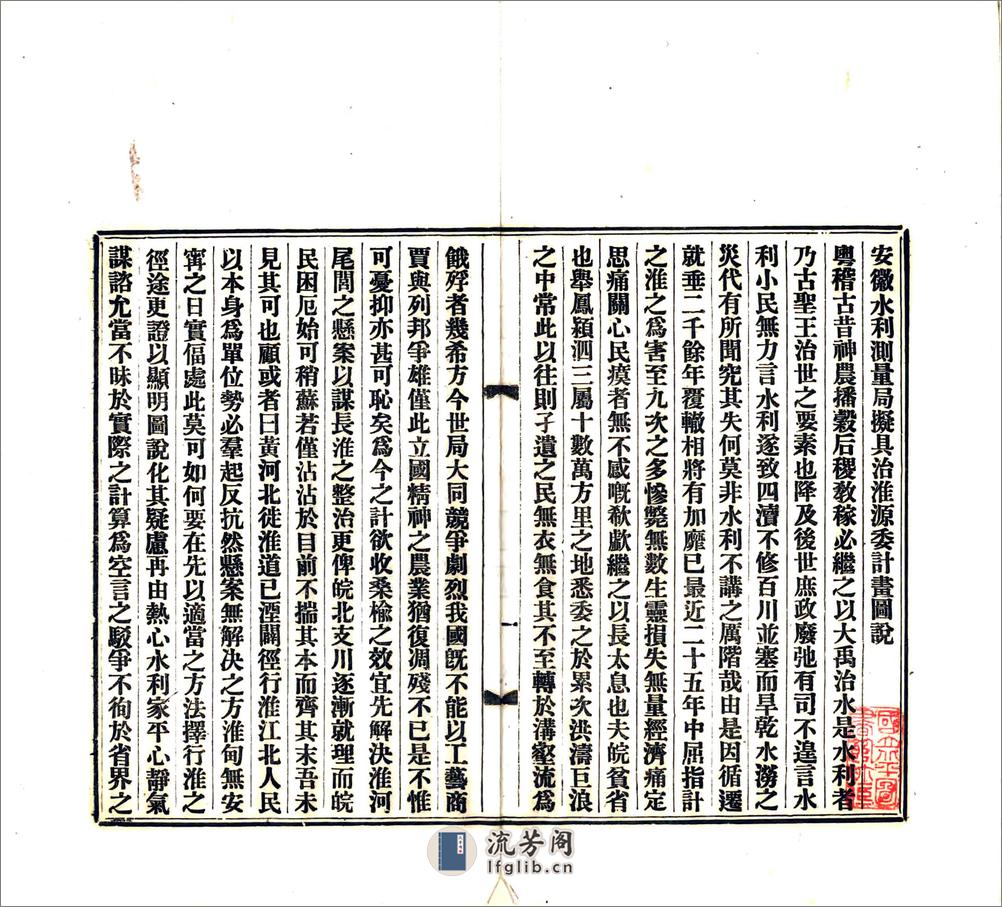 安徽水利測量局擬具治淮源委計畫圖說
粵稽古昔神農播穀后稷敎稼必繼之以大禹治水是水利者
乃古聖王治世之要素也降及後世庶政廢弛有司不遑言水
利小民無力言水利遂致四瀆不修百川並塞而旱乾水澇之
災代有所聞究其失何莫非水利不講之厲階哉由是因循遷
就垂二千餘年覆轍相將有加靡已最近二十五年中屈指計
之淮之爲害至九次之多慘斃無數生靈損失無量經濟痛定
思痛關心民瘼者無不感嘅欷歔繼之以長太息也夫皖貧省
也舉鳳潁泗三屬十數萬方里之地悉委之於累次洪濤巨浪
之中常此以往則孑遺之民無衣無食其不至轉於溝壑流爲
一
餓殍者幾希方今世局大同競爭劇烈我國旣不能以工藝商
賈與列邦爭雄僅此立國精神之農業猶復凋殘不已是不惟
可憂抑亦甚可恥矣爲今之計欲收桑榆之效宜先解決淮河
尾閭之懸案以謀長淮之整治更俾皖北支川逐漸就理而皖
民困厄始可稍蘇若僅沾沾於目前不揣其本而齊其末吾未
見其可也顧或者曰黃河北徙淮道已湮闢徑行淮江北人民
以本身爲單位勢必羣起反抗然懸案無解決之方淮甸無安
甯之日實偪處此莫可如何要在先以適當之方法擇行淮之
徑途更證以顯明圖說化其疑慮再由熱心水利家平心靜氣
謀諮允當不昧於實際之計算爲空言之駁爭不徇於省界之
流芳阁
lfglib.cn